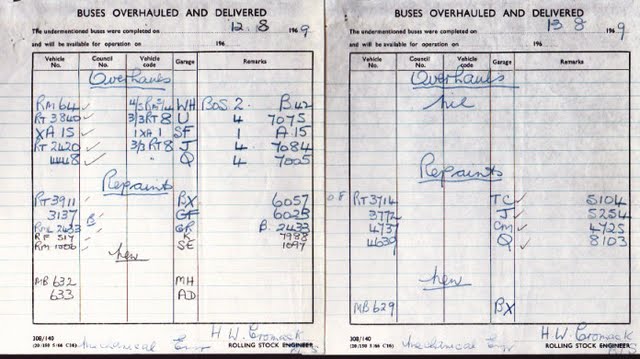 BUSES OVERHAULED AND DELIVERED
The undermentioned buses were completed on 12.8 1969
and will be available for operation on 196
Vehicle No. Council No. Vehicle code Garage Remarks
Overhauls
RM 64 ✓ WH BOS. 2. B42
RT 3840 ✓ 3/3 RT 8 U 4 7075
XA 15 ✓ 1 XA 1 SF 1 A 15
RT 2420 ✓ 3/3 RT 8 J 4 7084
4448 ✓ " Q 4 7005
Repaints
RT 3911 BX 6057
3137 GF 6023
RML 2433 GR B. 2433
RF 517 K 7988
RM 1006 SE 1097
New
MB 632 MH
633 AD
H W Cromack
308/140
(20/100 5/66 C36)
Mechanical Engr
ROLLING STOCK ENGINEER
BUSES OVERHAULED AND DELIVERED
The undermentioned buses were completed on 13 8 1969
and will be available for operation on 196
Vehicle No. Council No. Vehicle code Garage Remarks
Overhauls
nil
Repaints
08 RT 3714 TC ✓ 5104
3772 J ✓ 5254
4737 CM ✓ 4725
4639 Q ✓ 8103
New
MB 629 BX
H.W. Cromack
308/140
(20/100 5/66 C36)
Mechanical Engr
ROLLING STOCK ENGINEER